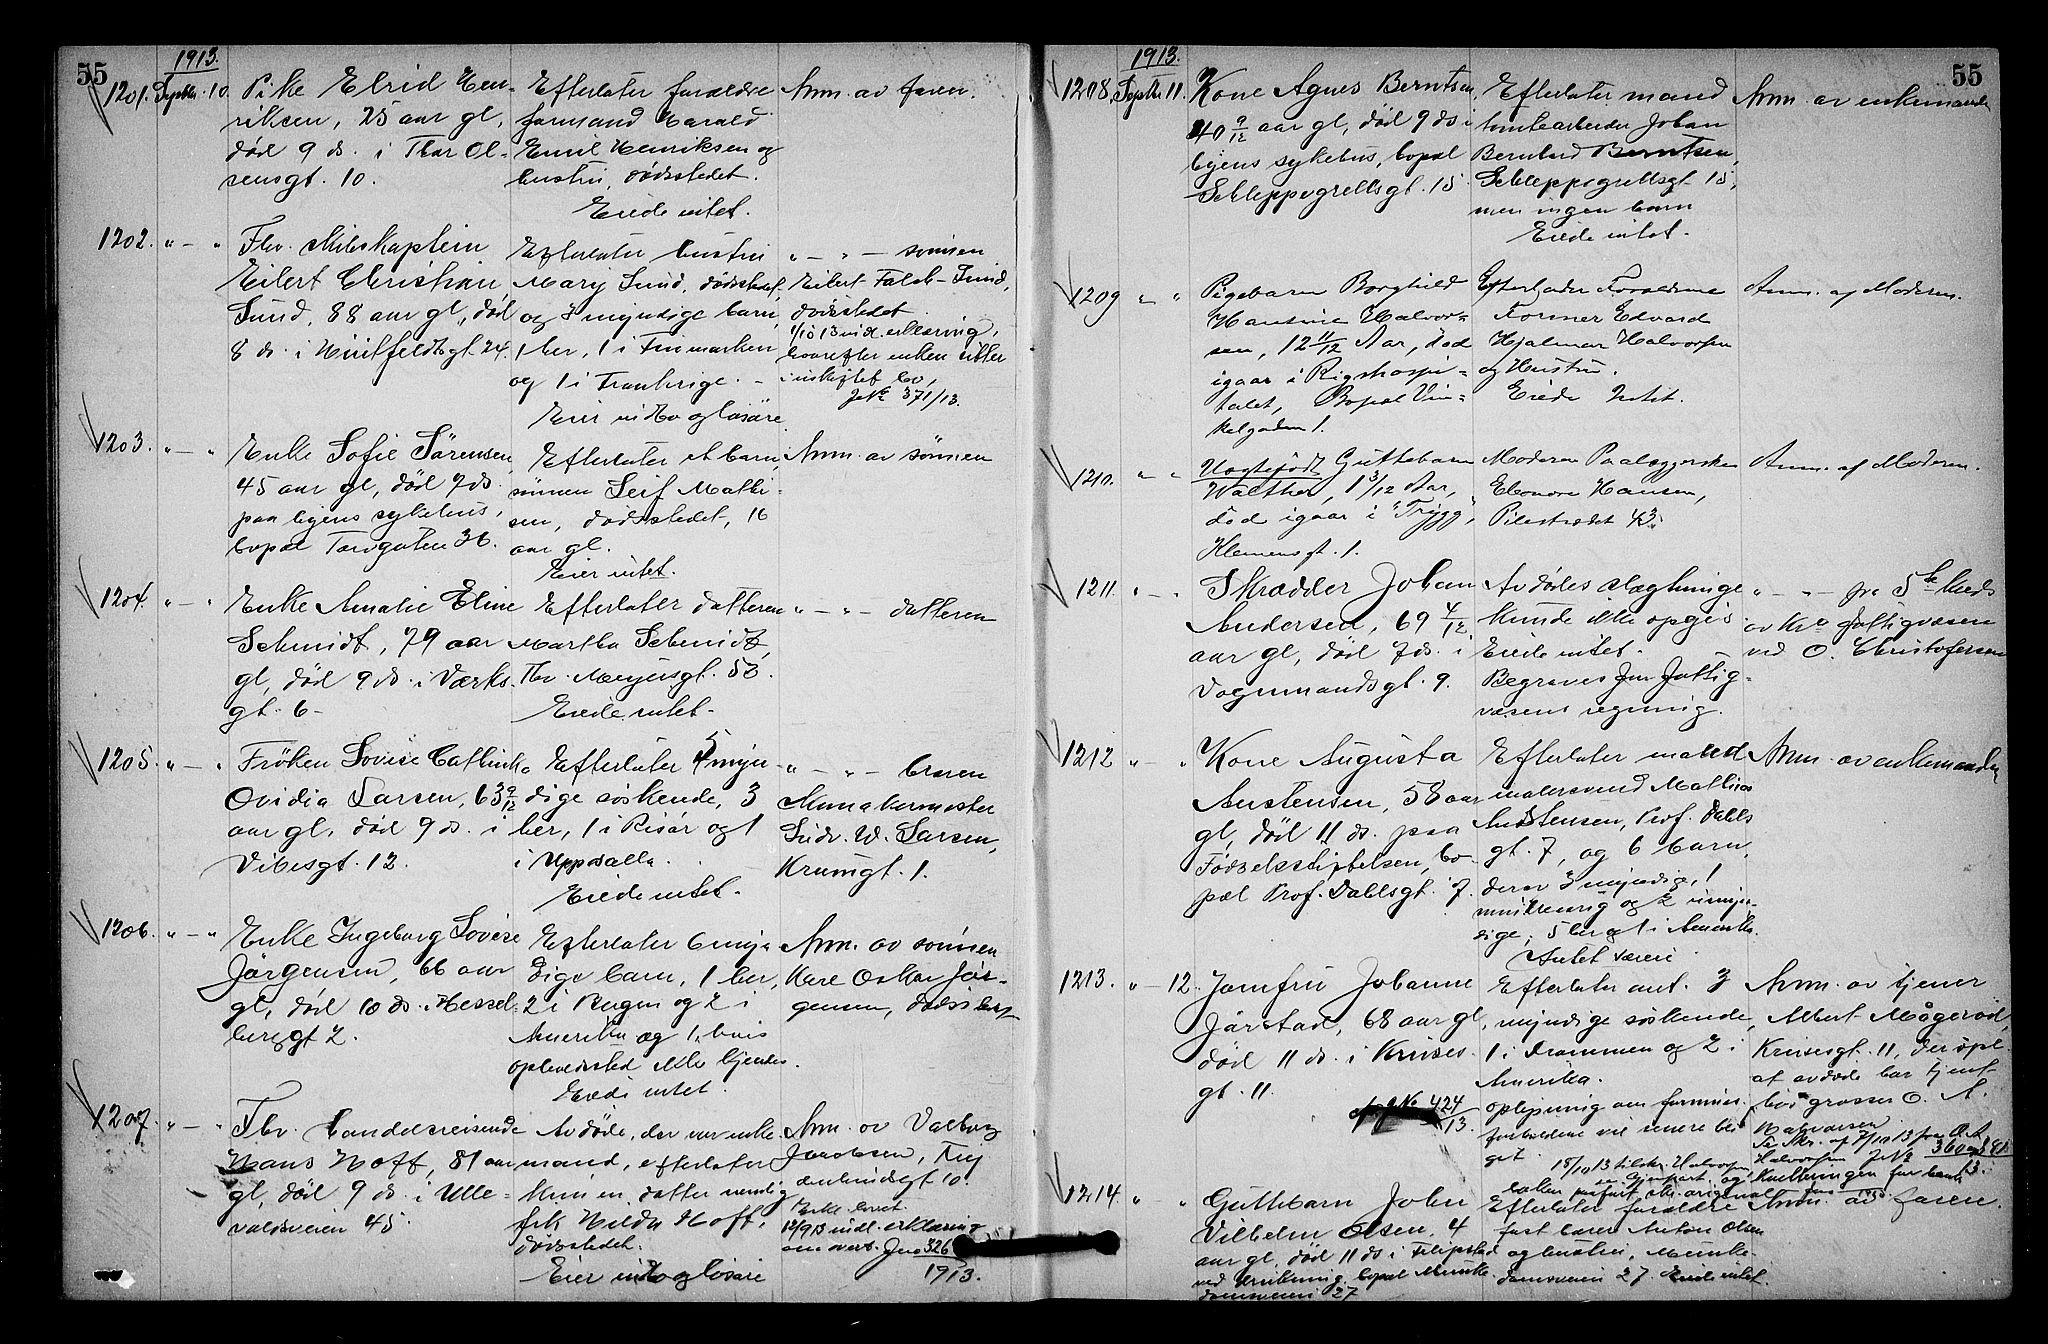 55
1913.
1201. Septbr. 10.
Pike Elrid Hen-
riksen, 25 aar gl,
död 9 ds. i Thor Ol-
sensgt. 10.
Efterlater forældre
formand Harald
Emil Henriksen og
hustru, dödsstedet.
Eiede intet.
Anm. av faren.
1202. " — "
Fhv. Skibskaptein
Eilert Christian
Sund, 88 aar gl, död
8 ds. i Huitfeldtsgt. 24.
Efterlater hustru
Mary Sund, dödsstedet,
og 3 myndige barn,
1 her, 1 i Finmarken
og 1 i Frankrige. –
Eier indbo og lösöre.
" — " — sönnen
Eilert Falch-Sund,
dödsstedet.
1/10 13 indl. erklæring,
hvorefter enken sitter
i uskiftet bo,
J. No 371/13.
1203. " — "
Enke Sofie Sörensen,
45 aar gl, död 7 ds.
paa byens sykehus,
bopæl Torvgaten 36.
Efterlater et barn,
sönnen Leif Mathi-
sen, dödsstedet, 16
aar gl.
Eier intet.
Anm. av sönnen
1204. " — "
Enke Amalie Eline
Schmidt, 79 aar
gl, död 9 ds. i Værks-
gt. 6 –
Efterlater datteren
Martha Schmidt,
Thv. Meyersgt. 58.
Eiede intet.
" — " — datteren
1205. " — "
Fröken Lovise Cathinka
Ovidia Larsen, 63 9/12
aar gl, död 9 ds. i
Vibesgt. 12.
Efterlater 5 myn-
dige söskende, 3
her, 1 i Risör og 1
i Uppsalla.
Eiede intet.
" — " — broren
Skomakermester
Ludv. W. Larsen,
Krumgt. 1.
1206. " — "
Enke Ingeborg Lovise
Jörgensen, 66 aar
gl, död 10 ds. i Hessel-
bergt 2.
Efterlater 6 myn-
dige barn, 1 her,
2 i Bergen og 2 i
Amerika og 1, hvis
opholdssted ikke kjendes.
Eiede intet
Anm. av sönnen
Kare Oskar Jör-
gensen,
1207. " — "
Fhv. handelsreisende
Hans Hoff, 81 aar
gl, död 9 ds. i Ulle-
valdsveien 45.
Avdöde, der var enke-
mand, efterlater
kun en datter nemlig
frk Hilda Hoff,
dödsstedet.
Eier indbo og lösöre
Anm. av Valborg
Jacobsen,
12/9 13 indl. erklæring
om overt. Jno 326
1913.
55
1913.
1208. Septbr. 11.
Kone Agnes Berntsen,
40 9/12 aar gl, död 9 ds. i
byens sykehus, bopæl
Schleppegrellsgt. 15
Efterlater mand
tomtearbeider Johan
Bernhard Berntsen,
Schleppegrellsgt. 15,
men ingen barn
Eiede intet.
Anm. av enkemanden
1209 " "
Pigebarn Borghild
Hansine Halvor-
sen, 12 11/12 Aar, död
igaar i Rigshospi-
talet, Bopæl Vin-
kelgaden 1.
Efterlader Forældrene
Former Edvard
Hjalmar Halvorsen
og Hustru.
Eiede Intet.
Anm. af Moderen.
1210. " "
Uægtefödt Guttebarn
Walther, 1 3/12 Aar,
död igaar i "Trygg",
Klemensgt. 1.
Moderen Paalæggerske
Elenore Hansen,
Pilestrædet 43.
Anm. af Moderen.
1211. " — "
Skrædder Johan
Andersen, 69 4/12
aar gl, död 7 ds. i
Vognmandsgt. 9.
Avdödes slægtninge
kunde ikke opgis.
Eiede intet.
Begraves for fattig-
væsens regning.
" — " — fra 5te kreds
av Kra fattigvæsen
ved O. Christofersen
1212 " — "
Kone Augusta
Austensen, 58 aar
gl, död 11 ds. paa
Födselsstiftelsen, bo-
pæl Prof. Dahlsgt. 7.
Efterlater mand
malersvend Mathias
Austensen, Prof. Dahls
gt. 7, og 6 barn,
derav 3 myndig, 1
mindreaarig og 2 umyn-
dige; 5 her og 1 i Amerika.
Intet værei
Anm. av enkemanden
1213. " — 12.
Jomfru Johanne
Jörstad, 68 aar gl,
död 11 ds. i Kruses-
gt. 11.
424
13.
Efterlater ant. 3
myndige söskende,
1 i Drammen og 2 i
Amerika.
oplysning om formues-
forholdene vil senere bli
git
Anm. av tjener
Albert Mågeröd,
Krusesgt. 11, der opl.
at avdöde har tjent
hos grosser O. A.
Halvorsen.
1214. " "
Guttebarn John
Vilhelm Olsen, 4
aar gl, död 11 ds i Filipstad
ved drukning, bopæl Munke-
damsveien 27
Efterlater forældre
fast bærer Anton Olsen
og hustru, Munke-
damsveien 27. Eiede intet.
Anm. av faren.